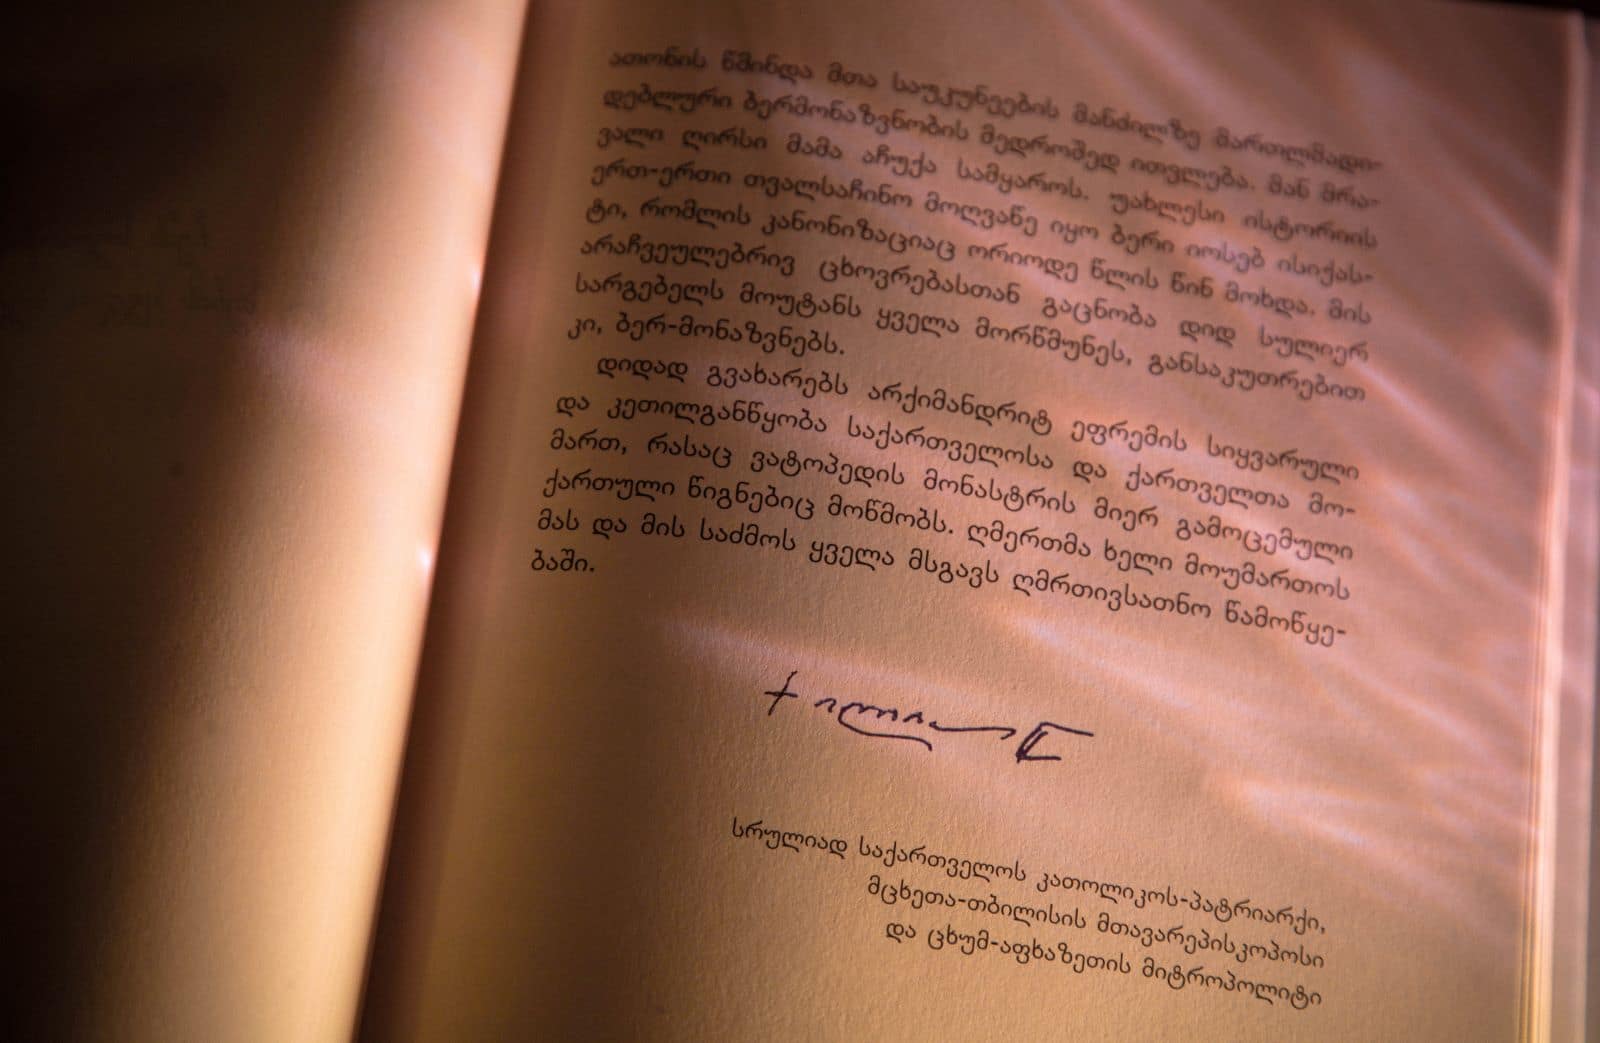 ათონის წმინდა მთა საუკუნეების მანძილზე მართლმადი-
დებლური ბერმონაზვნობის მედროშედ ითვლება. მან მრა-
ვალი ღირსი მამა აჩუქა სამყაროს. უახლესი ისტორიის
ერთ-ერთი თვალსაჩინო მოღვაწე იყო ბერი იოსებ ისიქას-
ტი, რომლის კანონიზაციაც ორიოდე წლის წინ მოხდა. მის
არაჩვეულებრივ ცხოვრებასთან გაცნობა დიდ სულიერ
სარგებელს მოუტანს ყველა მორწმუნეს, განსაკუთრებით
კი, ბერ-მონაზვნებს.
დიდად გვახარებს არქიმანდრიტ ეფრემის სიყვარული
და კეთილგანწყობა საქართველოსა და ქართველთა მი-
მართ, რასაც ვატოპედის მონასტრის მიერ გამოცემული
ქართული წიგნებიც მოწმობს. ღმერთმა ხელი მოუმართოს
მას და მის საძმოს ყველა მსგავს ღმრთივსათნო წამოწყე-
ბაში.
სრულიად საქართველოს კათოლიკოს-პატრიარქი,
მცხეთა-თბილისის მთავარეპისკოპოსი
და ცხუმ-აფხაზეთის მიტროპოლიტი